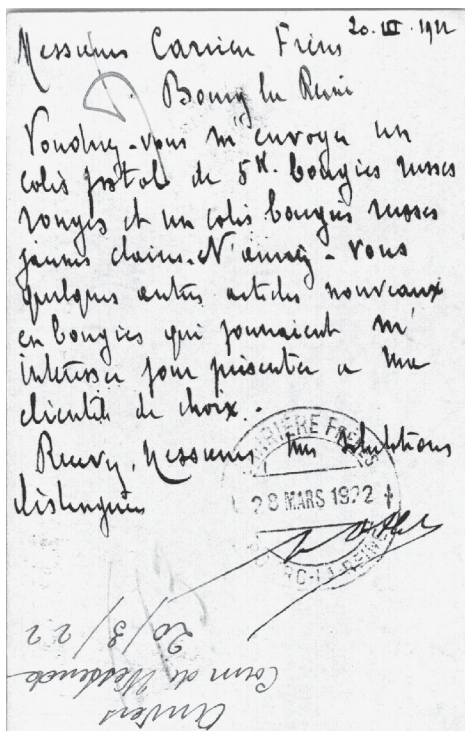 20. III. 1922
Messieurs Carrière Frères
Bourg la Reine
Voudriez-vous m'envoyer un
colis postal de 5 K. bougies russes
rouges et un colis bougies russes
jaunes claires. N'auriez-vous
quelques autres articles nouveaux
en bougies qui pourraient m'
intéresser pour présenter a ma
clientèle de choix.
Recevez, Messieurs mes salutations
distinguées
CARRIÈRE FRÈRES
28 MARS 1922
BOURG-LA-REINE
Anvers
Com de Westende
20/3/22